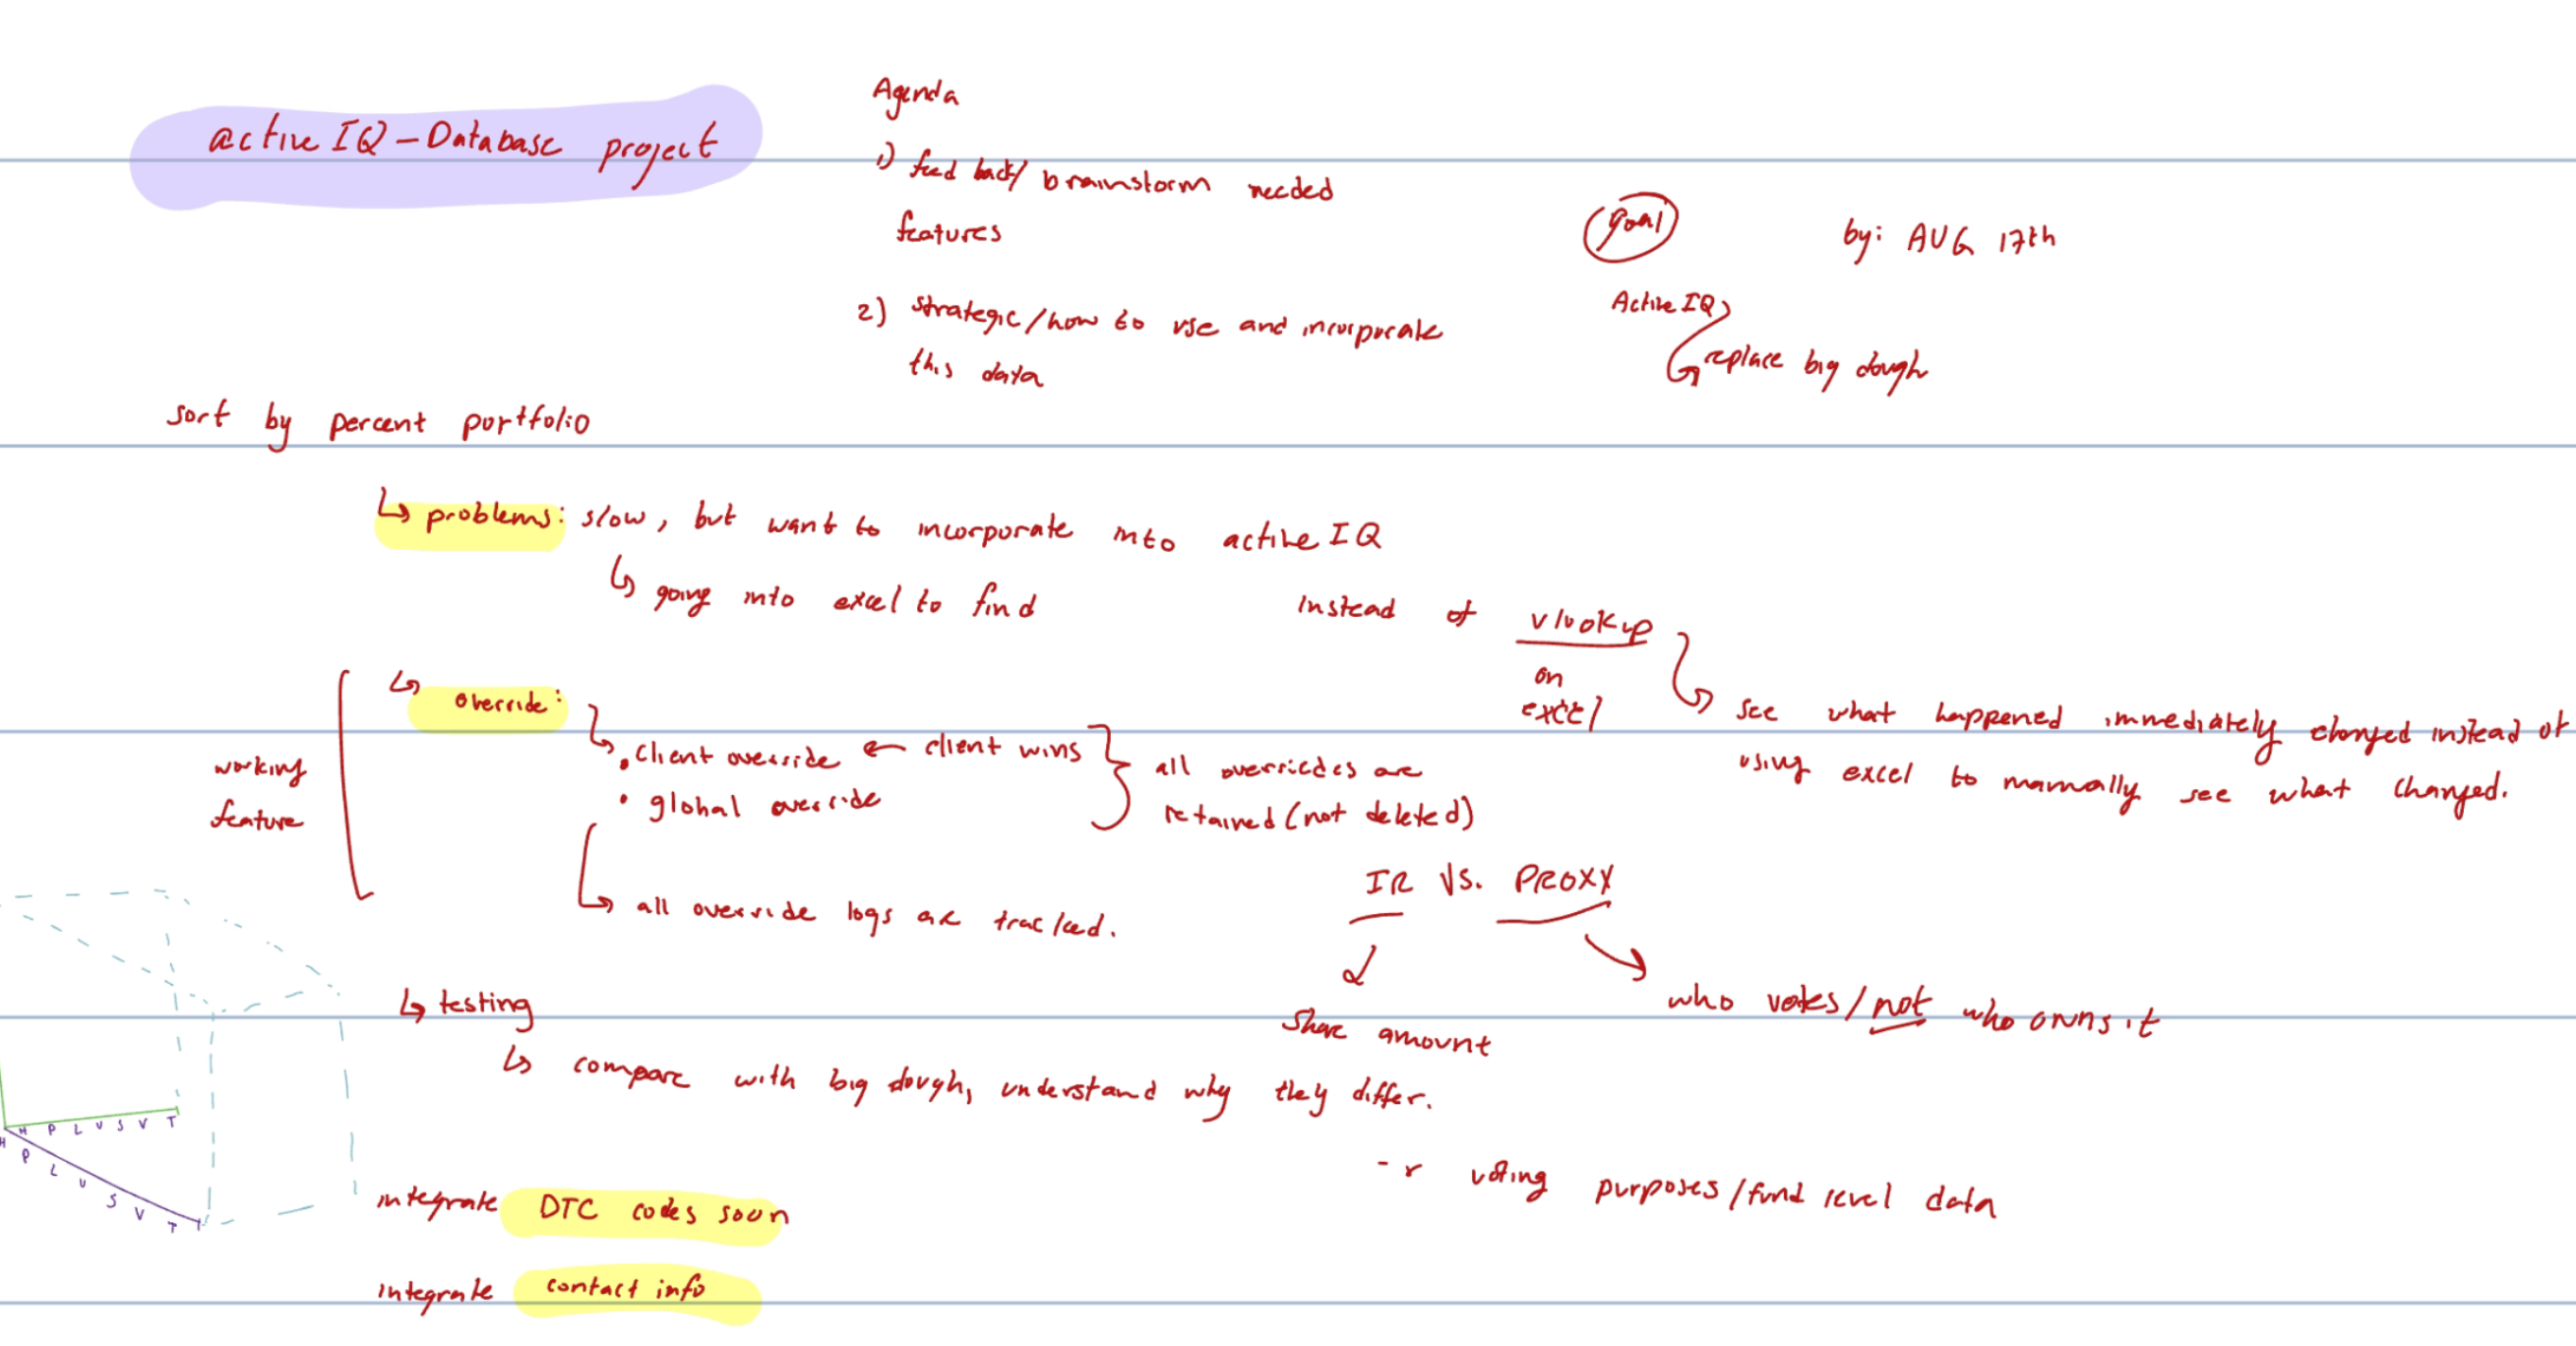 activeIQ - Database project
Agenda
1) feed back/ brainstorm needed
features
2) strategic/how to use and incorporate
this data
goal
by: AUG 17th
Active IQ
replace big dough
sort by percent portfolio
problems: slow, but want to incorporate into active IQ
going into excel to find
instead of vlookup
on
excel
see what happened immediately changed instead of
using excel to manually see what changed.
working
feature
override:
• client override ← client wins
• global override
all overrides are
retained (not deleted)
all override logs are tracked.
IR VS. PROXY
share amount
who votes/not who owns it
testing
compare with big dough, understand why they differ.
- r voting purposes/fund level data
integrate DTC codes soon
integrate contact info
H P L U S V T
H P L U S V T